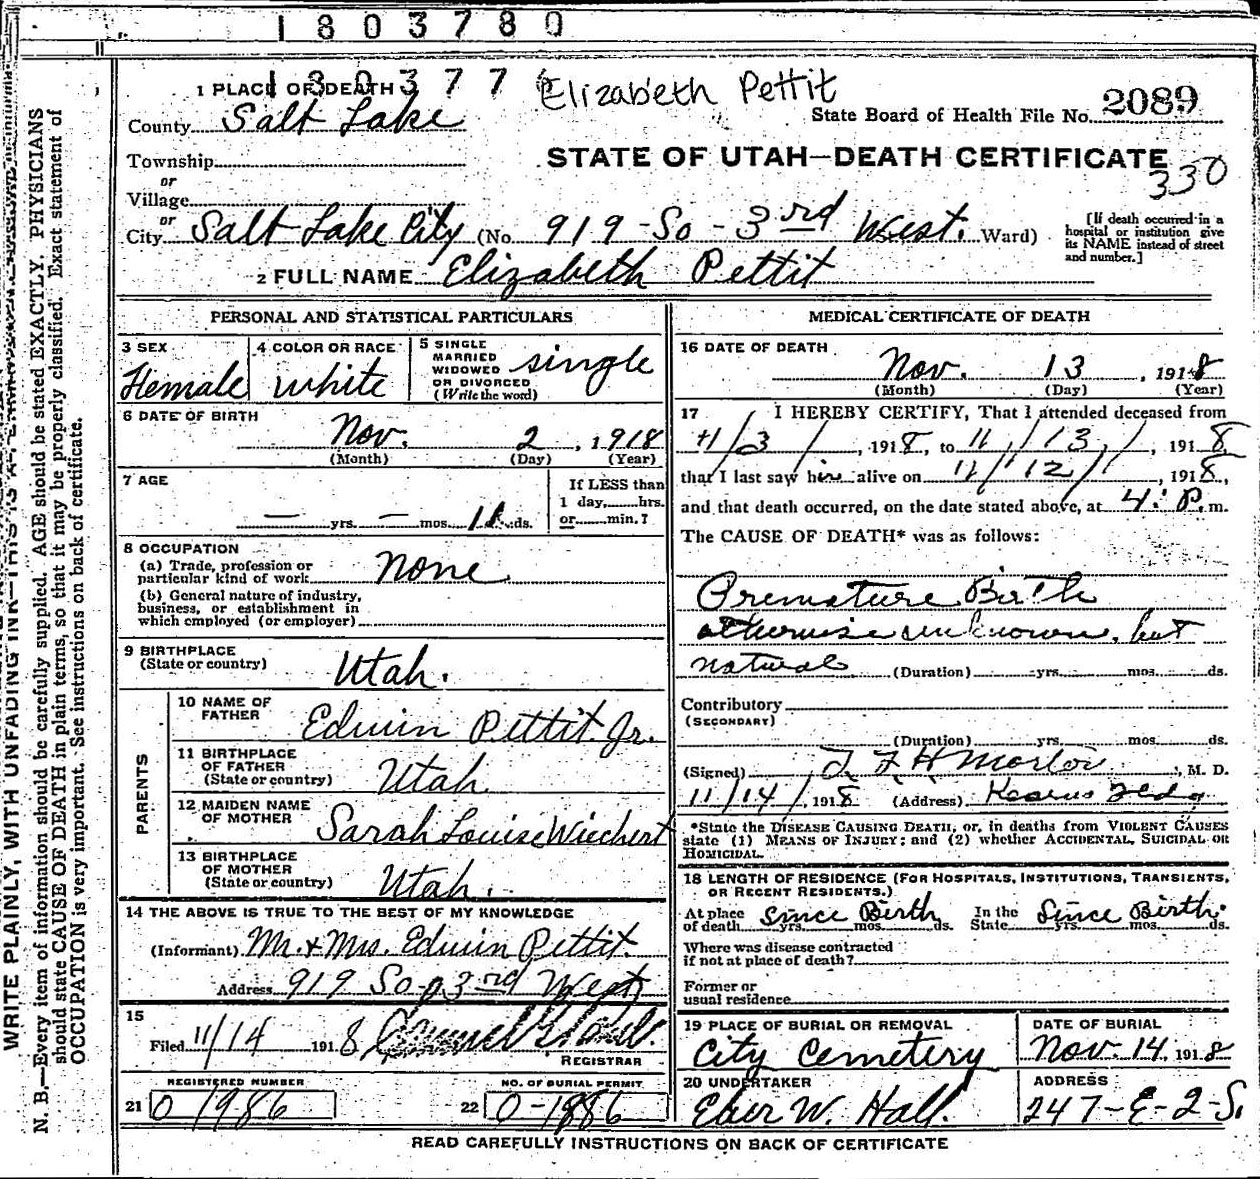 1803780
1803776 Elizabeth Pettit
1 PLACE OF DEATH
County Salt Lake
State Board of Health File No. 2089
Township
or
Village
or
STATE OF UTAH—DEATH CERTIFICATE
330
City Salt Lake City (No. 919-So-3rd West. Ward)
[If death occurred in a
hospital or institution give
its NAME instead of street
and number.]
2 FULL NAME Elizabeth Pettit
PERSONAL AND STATISTICAL PARTICULARS
3 SEX
Female
4 COLOR OR RACE
White
5 SINGLE
MARRIED
WIDOWED
OR DIVORCED
(Write the word)
single
6 DATE OF BIRTH
Nov. 2, 1918
(Month) (Day) (Year)
7 AGE
— yrs. — mos. 11 ds.
If LESS than
1 day, hrs.
or min.?
8 OCCUPATION
(a) Trade, profession or
particular kind of work None
(b) General nature of industry,
business, or establishment in
which employed (or employer)
9 BIRTHPLACE
(State or country) Utah.
PARENTS
10 NAME OF
FATHER Edwin Pettit Jr.
11 BIRTHPLACE
OF FATHER
(State or country) Utah
12 MAIDEN NAME
OF MOTHER Sarah Louise Wiechert
13 BIRTHPLACE
OF MOTHER
(State or country) Utah.
14 THE ABOVE IS TRUE TO THE BEST OF MY KNOWLEDGE
(Informant) Mr. & Mrs. Edwin Pettit.
Address 919 So 3rd West
15
Filed 11/14 1918
REGISTRAR
REGISTERED NUMBER
21 0 1986
NO. OF BURIAL PERMIT
22 0-1886
MEDICAL CERTIFICATE OF DEATH
16 DATE OF DEATH
Nov. 13, 1918
(Month) (Day) (Year)
17 I HEREBY CERTIFY, That I attended deceased from
11/3/, 1918, to 11/13/, 1918,
that I last saw him alive on 11/12/, 1918,
and that death occurred, on the date stated above, at 4: P. m.
The CAUSE OF DEATH* was as follows:
Premature Birth
otherwise unknown, but
natural (Duration) yrs. mos. ds.
Contributory
(SECONDARY)
(Duration) yrs. mos. ds.
(Signed) M. D.
11/14/, 1918 (Address) Kearns Bldg
*State the DISEASE CAUSING DEATH, or, in deaths from VIOLENT CAUSES
state (1) MEANS OF INJURY; and (2) whether ACCIDENTAL, SUICIDAL OR
HOMICIDAL.
18 LENGTH OF RESIDENCE (FOR HOSPITALS, INSTITUTIONS, TRANSIENTS,
OR RECENT RESIDENTS.)
At place
of death Since Birth yrs. mos. ds.
In the
State Since Birth. yrs. mos. ds.
Where was disease contracted
if not at place of death?
Former or
usual residence
19 PLACE OF BURIAL OR REMOVAL
City Cemetery
DATE OF BURIAL
Nov. 14, 1918
20 UNDERTAKER
Eber W. Hall.
ADDRESS
247-E-2-S.
READ CAREFULLY INSTRUCTIONS ON BACK OF CERTIFICATE
N. B.—Every item of information should be carefully supplied. AGE should be stated EXACTLY. PHYSICIANS
should state CAUSE OF DEATH in plain terms, so that it may be properly classified. Exact statement of
OCCUPATION is very important. See instructions on back of certificate.
WRITE PLAINLY, WITH UNFADING INK—THIS IS A